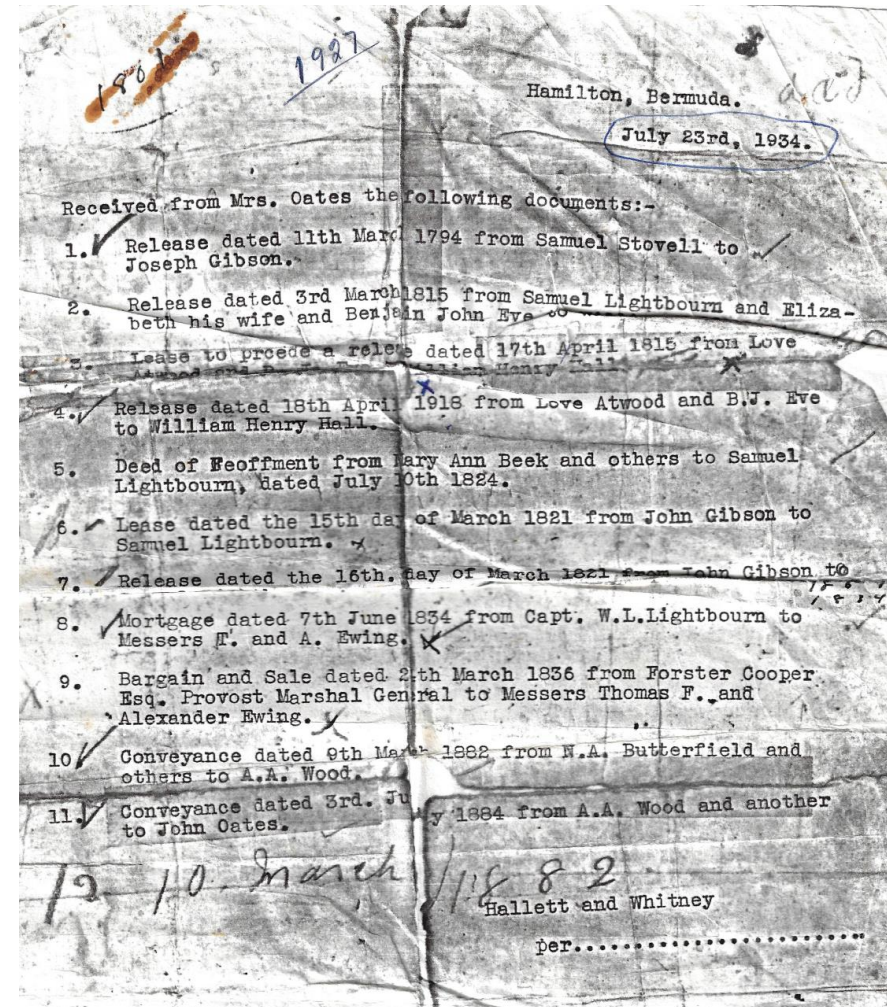 1861
1927
Hamilton, Bermuda.
dad
July 23rd, 1934.
Received from Mrs. Oates the following documents:-
1. Release dated 11th March 1794 from Samuel Stovell to
Joseph Gibson.
2. Release dated 3rd March 1815 from Samuel Lightbourn and Eliza-
beth his wife and Benjain John Eve to
3. Lease to prcede a relese dated 17th April 1815 from Love
Atwood and William Henry Hall.
4. Release dated 18th April 1918 from Love Atwood and B.J. Eve
to William Henry Hall.
5. Deed of Feoffment from Mary Ann Beek and others to Samuel
Lightbourn, dated July 10th 1824.
6. Lease dated the 15th day of March 1821 from John Gibson to
Samuel Lightbourn.
7. Release dated the 16th. day of March 1821 from John Gibson to
1834
8. Mortgage dated 7th June 1834 from Capt. W.L.Lightbourn to
Messers T. and A. Ewing.
9. Bargain and Sale dated 2 th March 1836 from Forster Cooper
Esq. Provost Marshal General to Messers Thomas F. and
Alexander Ewing.
10 Conveyance dated 9th March 1882 from N.A. Butterfield and
others to A.A. Wood.
11. Conveyance dated 3rd. Ju y 1884 from A.A. Wood and another
to John Oates.
12 10 March 1882
Hallett and Whitney
per..........................